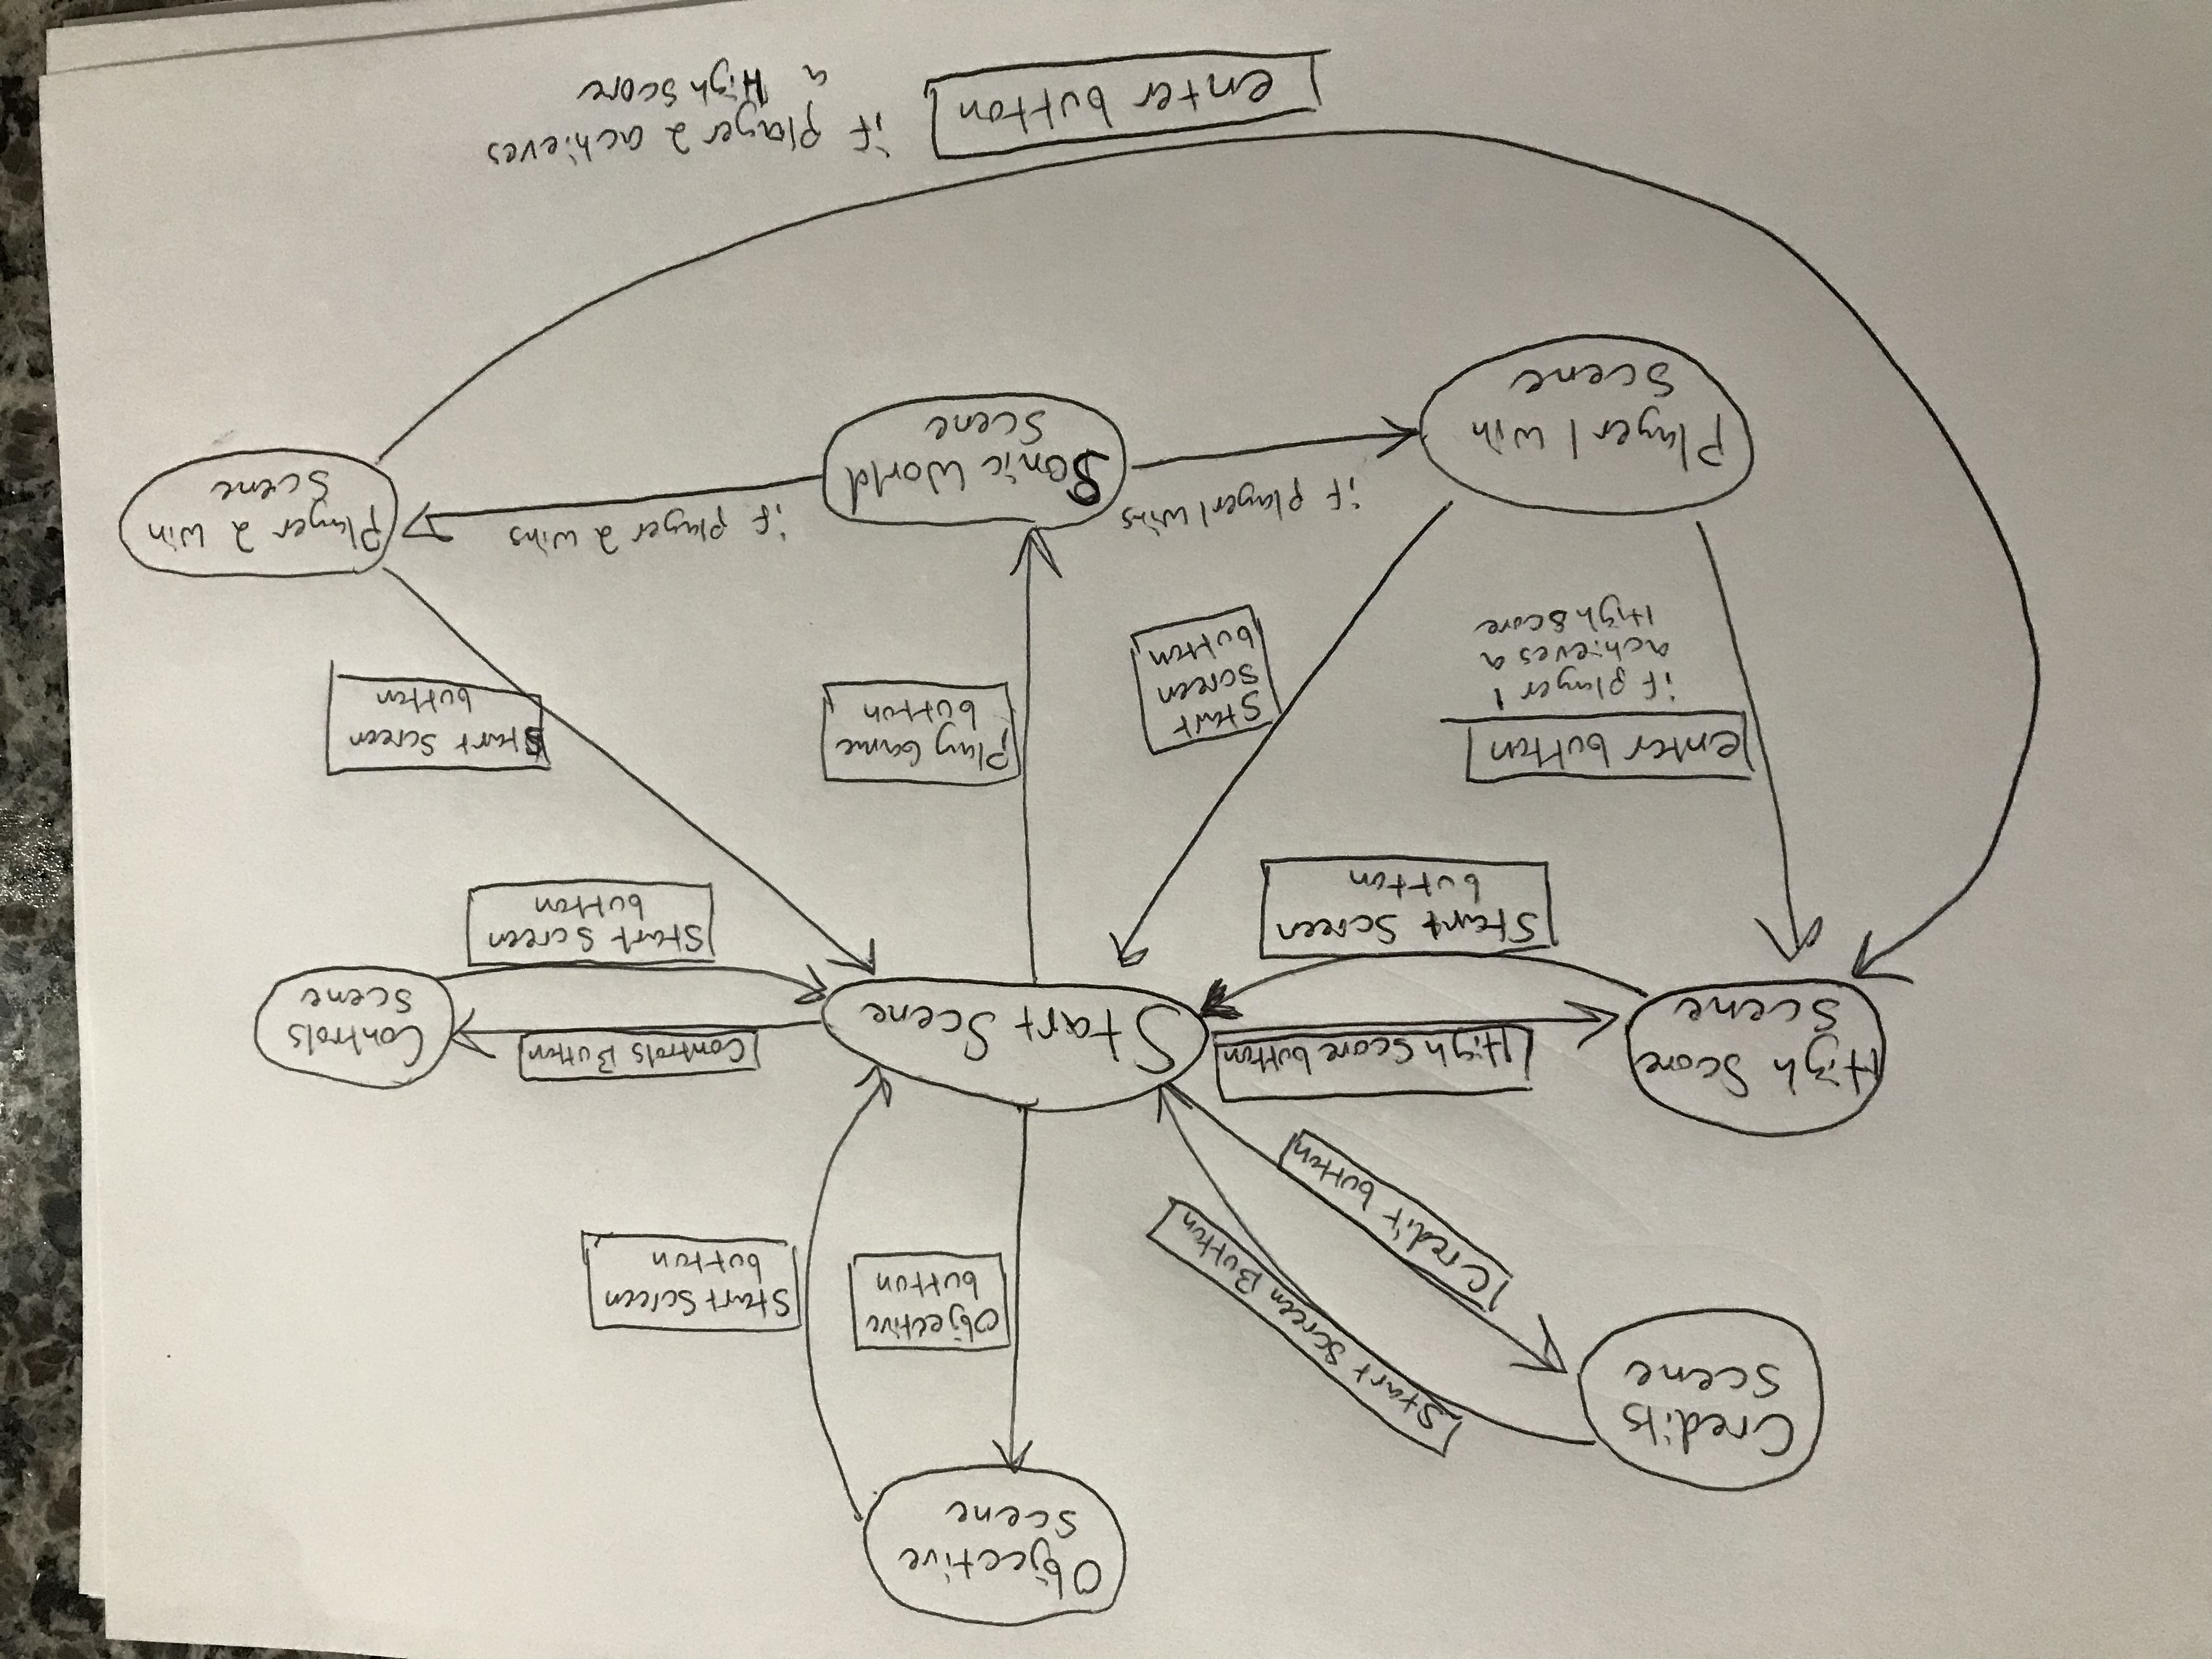 Objective
Scene
Credits
Scene
Start Screen Button
Credit button
Objective
button
Start Screen
button
High Score
Scene
High Score button
Start Scene
Controls Button
Controls
Scene
Start Screen
button
Start Screen
button
enter button
if player 1
achieves a
High Score
Start
Screen
button
Play Game
button
Start Screen
button
if player 1 wins
if player 2 wins
Player 1 Win
Scene
Sonic World
Scene
Player 2 Win
Scene
enter button
if player 2 achieves
a High Score